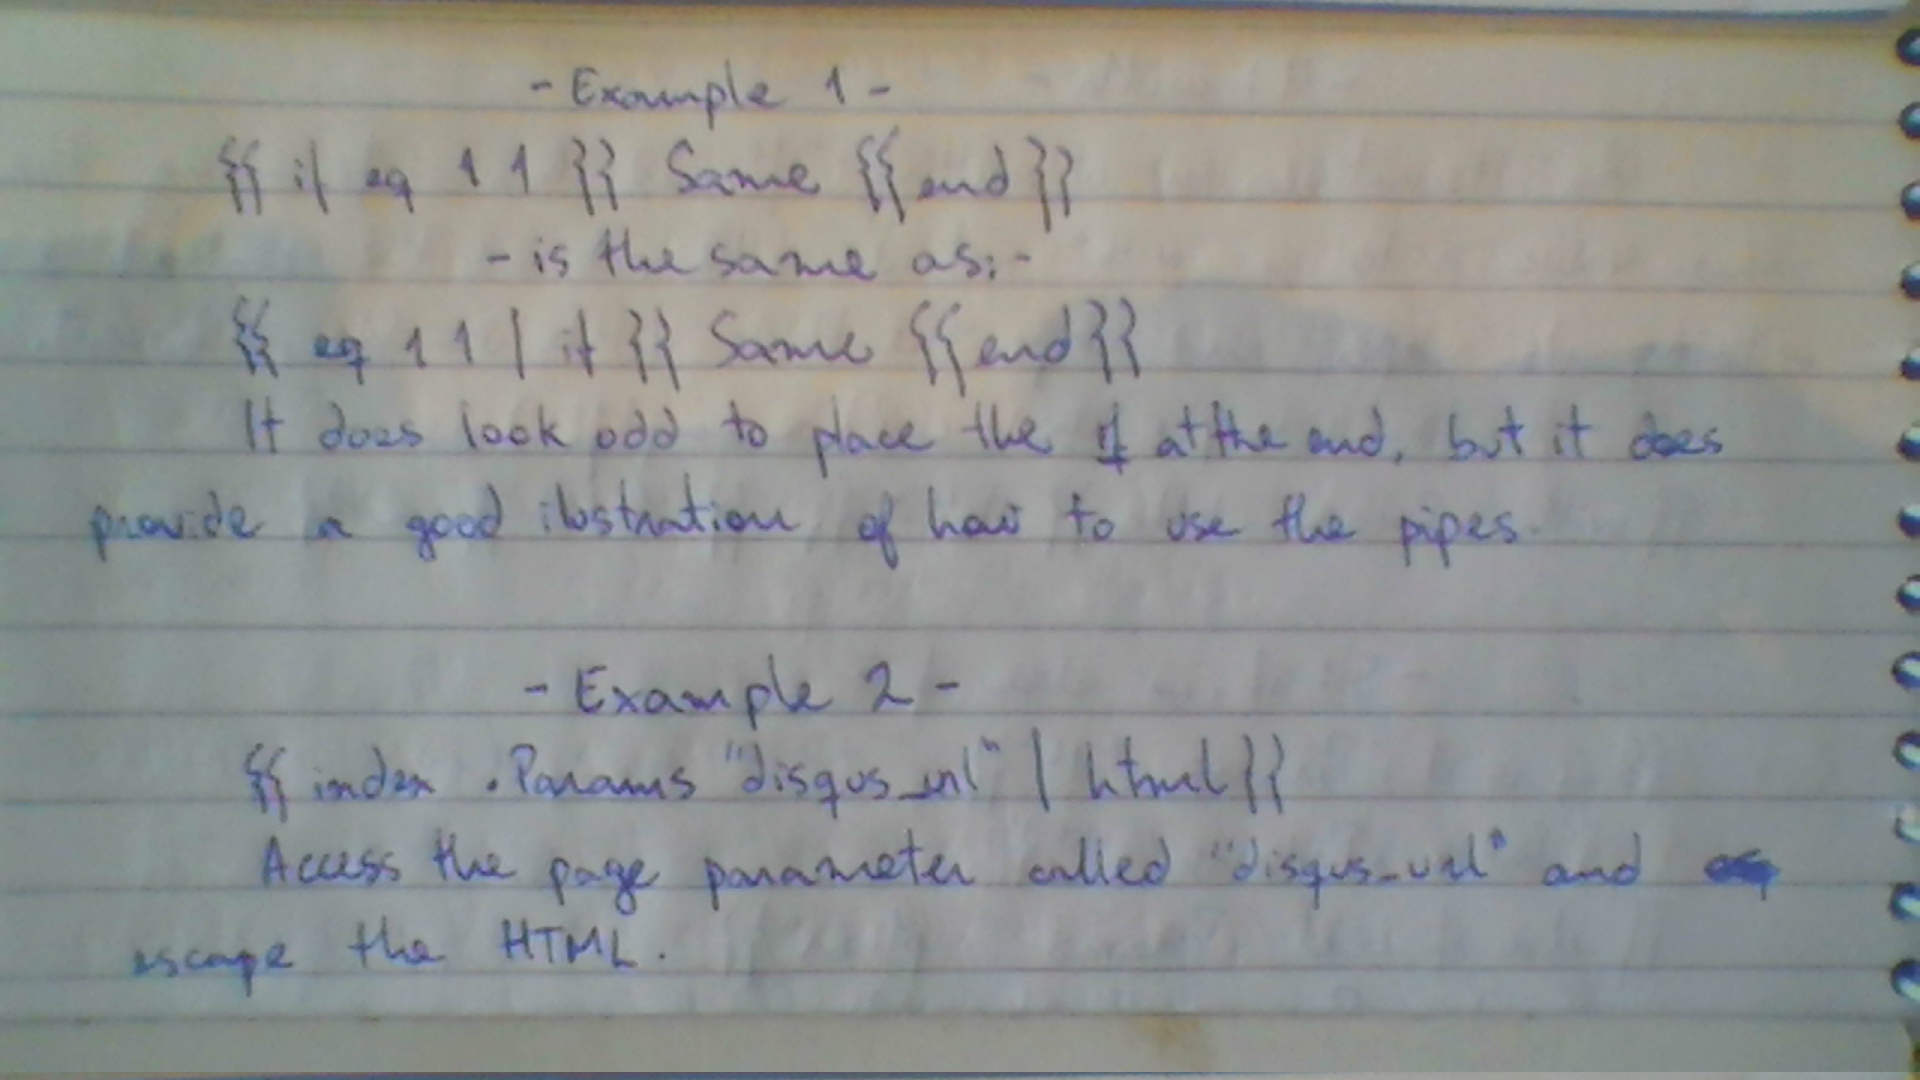 - Example 1 -
{{ if eq 1 1 }} Same {{ end }}
- is the same as: -
{{ eq 1 1 | if }} Same {{ end }}
It does look odd to place the if at the end, but it does
provide a good ilustration of how to use the pipes.
- Example 2 -
{{ index .Params "disqus_url" | html }}
Access the page parameter called "disqus_url" and
escape the HTML.